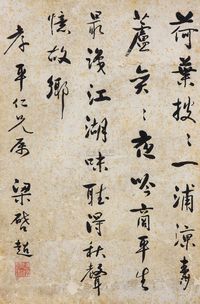 荷葉披〻一浦涼青
蘆奕〻夜吟商平生
最識江湖味聽得秋聲
憶故鄉
平仁兄属
梁啓超